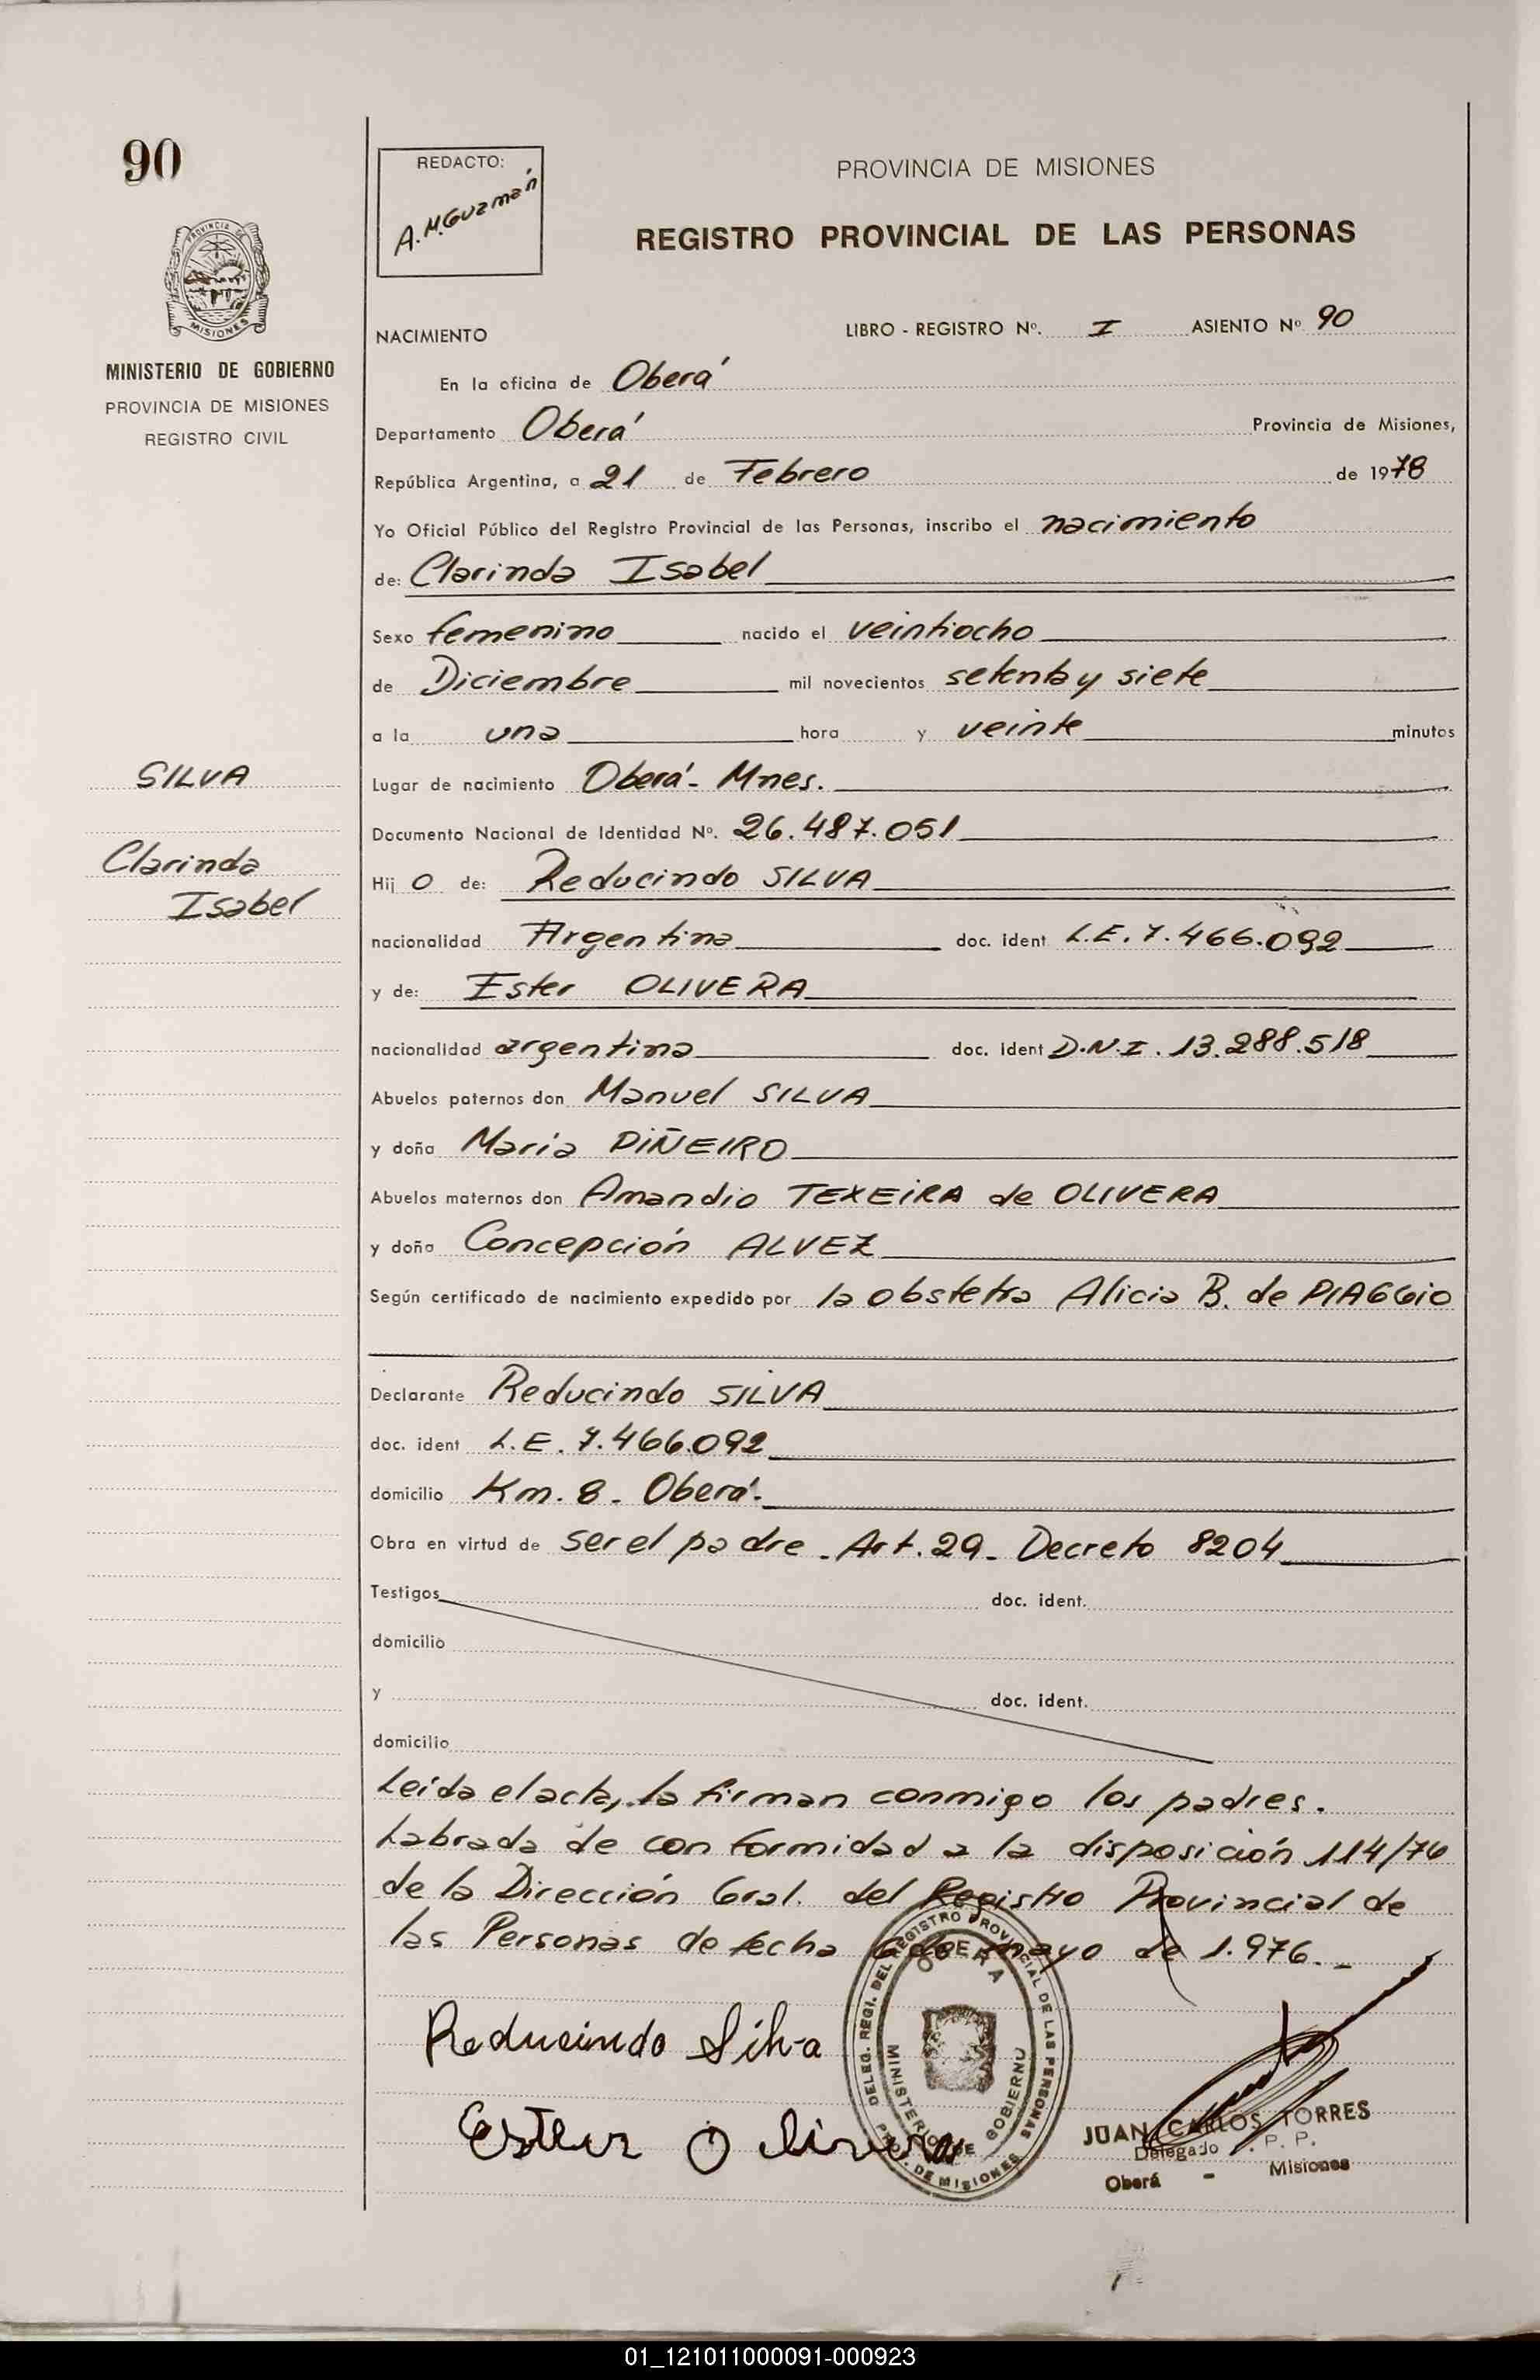 90
REDACTO:
A.M. Guzmán
PROVINCIA DE MISIONES
REGISTRO PROVINCIAL DE LAS PERSONAS
PROVINCIA DE
MISIONES
MINISTERIO DE GOBIERNO
PROVINCIA DE MISIONES
REGISTRO CIVIL
NACIMIENTO LIBRO - REGISTRO Nº. I ASIENTO Nº 90
En la oficina de Oberá
Departamento Oberá Provincia de Misiones,
República Argentina, a 21 de Febrero de 1978
Yo Oficial Público del Registro Provincial de las Personas, inscribo el nacimiento
de: Clarinda Isabel
Sexo femenino nacido el veintiocho
de Diciembre mil novecientos setenta y siete
a la una hora y veinte minutos
SILVA
Clarinda
Isabel
Lugar de nacimiento Oberá - Mnes.
Documento Nacional de Identidad Nº. 26.487.051
Hij o de: Reducindo SILVA
nacionalidad Argentina doc. ident L.E. 7.466.092
y de: Ester OLIVERA
nacionalidad argentina doc. ident D.N.I. 13.288.518
Abuelos paternos don Manuel SILVA
y doña Maria PIÑEIRO
Abuelos maternos don Amandio TEXEiRA de OLIVERA
y doña Concepción ALVEZ
Según certificado de nacimiento expedido por la obstetra Alicia B. de PIAGGiO
Declarante Reducindo SILVA
doc. ident L.E. 7.466.092
domicilio Km. 8 - Oberá.
Obra en virtud de ser el padre - Art. 29 - Decreto 8204
Testigos doc. ident.
domicilio
y doc. ident.
domicilio
Leída el acta, la firman conmigo los padres.
Labrada de conformidad a la disposición 114/76
de la Dirección Gral. del Registro Provincial de
las Personas de fecha 6 de mayo de 1.976. -
Reducindo Silva
Ester Olivera
DELEG. REGI. DEL REGISTRO PROVINCIAL DE LAS PERSONAS
OBERA
MINISTERIO DE GOBIERNO
PROV. DE MISIONES
JUAN CARLOS TORRES
Delegado P. P.
Oberá - Misiones
01_121011000091-000923